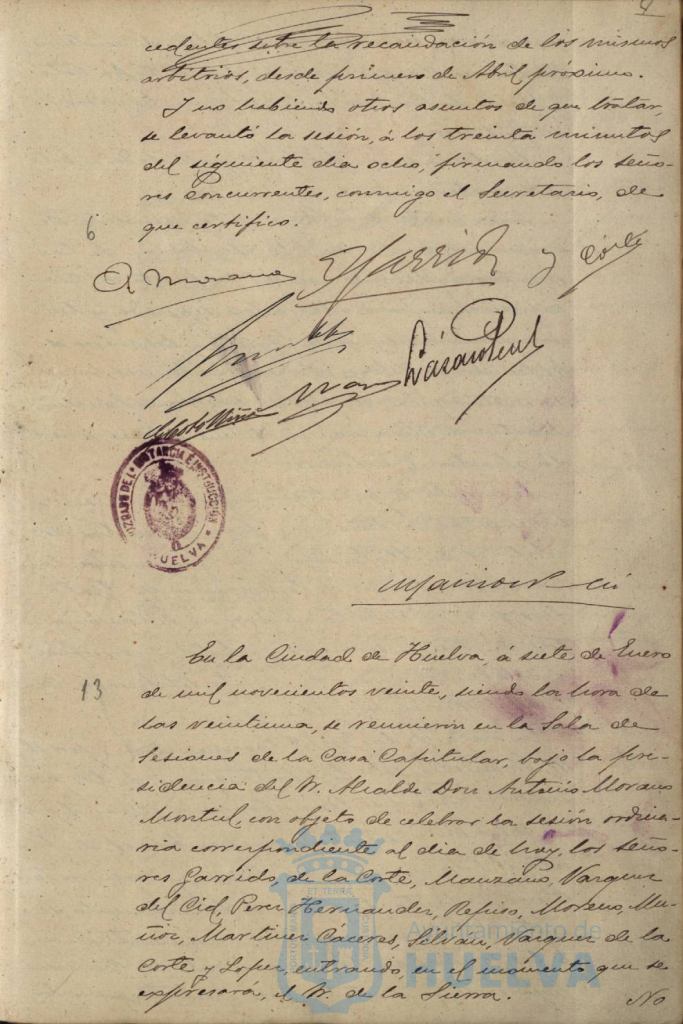 4
cedentes sobre la recaudación de los mismos
arbitrios, desde primero de Abril próximo.
Y no habiendo otros asuntos de que tratar,
se levantó la sesión, á los treinta minutos
del siguiente dia ocho, firmando los seño-
res concurrentes, conmigo el Secretario, de
que certifico.
6
A Moreno Garrido y Corte
Lázaro Perez
JUZGADO DE 1ª INSTANCIA E INSTRUCCION
HUELVA
En la Ciudad de Huelva, á siete de Enero
13
de mil novecientos veinte, siendo la hora de
las veintiuna, se reunieron en la Sala de
Sesiones de la Casa Capitular, bajo la pre-
sidencia del Sr. Alcalde Don Antonio Moreno
con objeto de celebrar la sesión ordina-
ria correspondiente al dia de hoy, los seño-
res Garrido, de la Corte, Manzano, Vazquez
del Cid, Perez Hernandez, Refiso, Moreno, Mu-
ñoz, Martinez Cáceres, Selván, Vazquez de la
Corte y Lopez, entrando, en el momento que se
expresará, el Sr. de la Sierra.
No
Ayuntamiento de
HUELVA